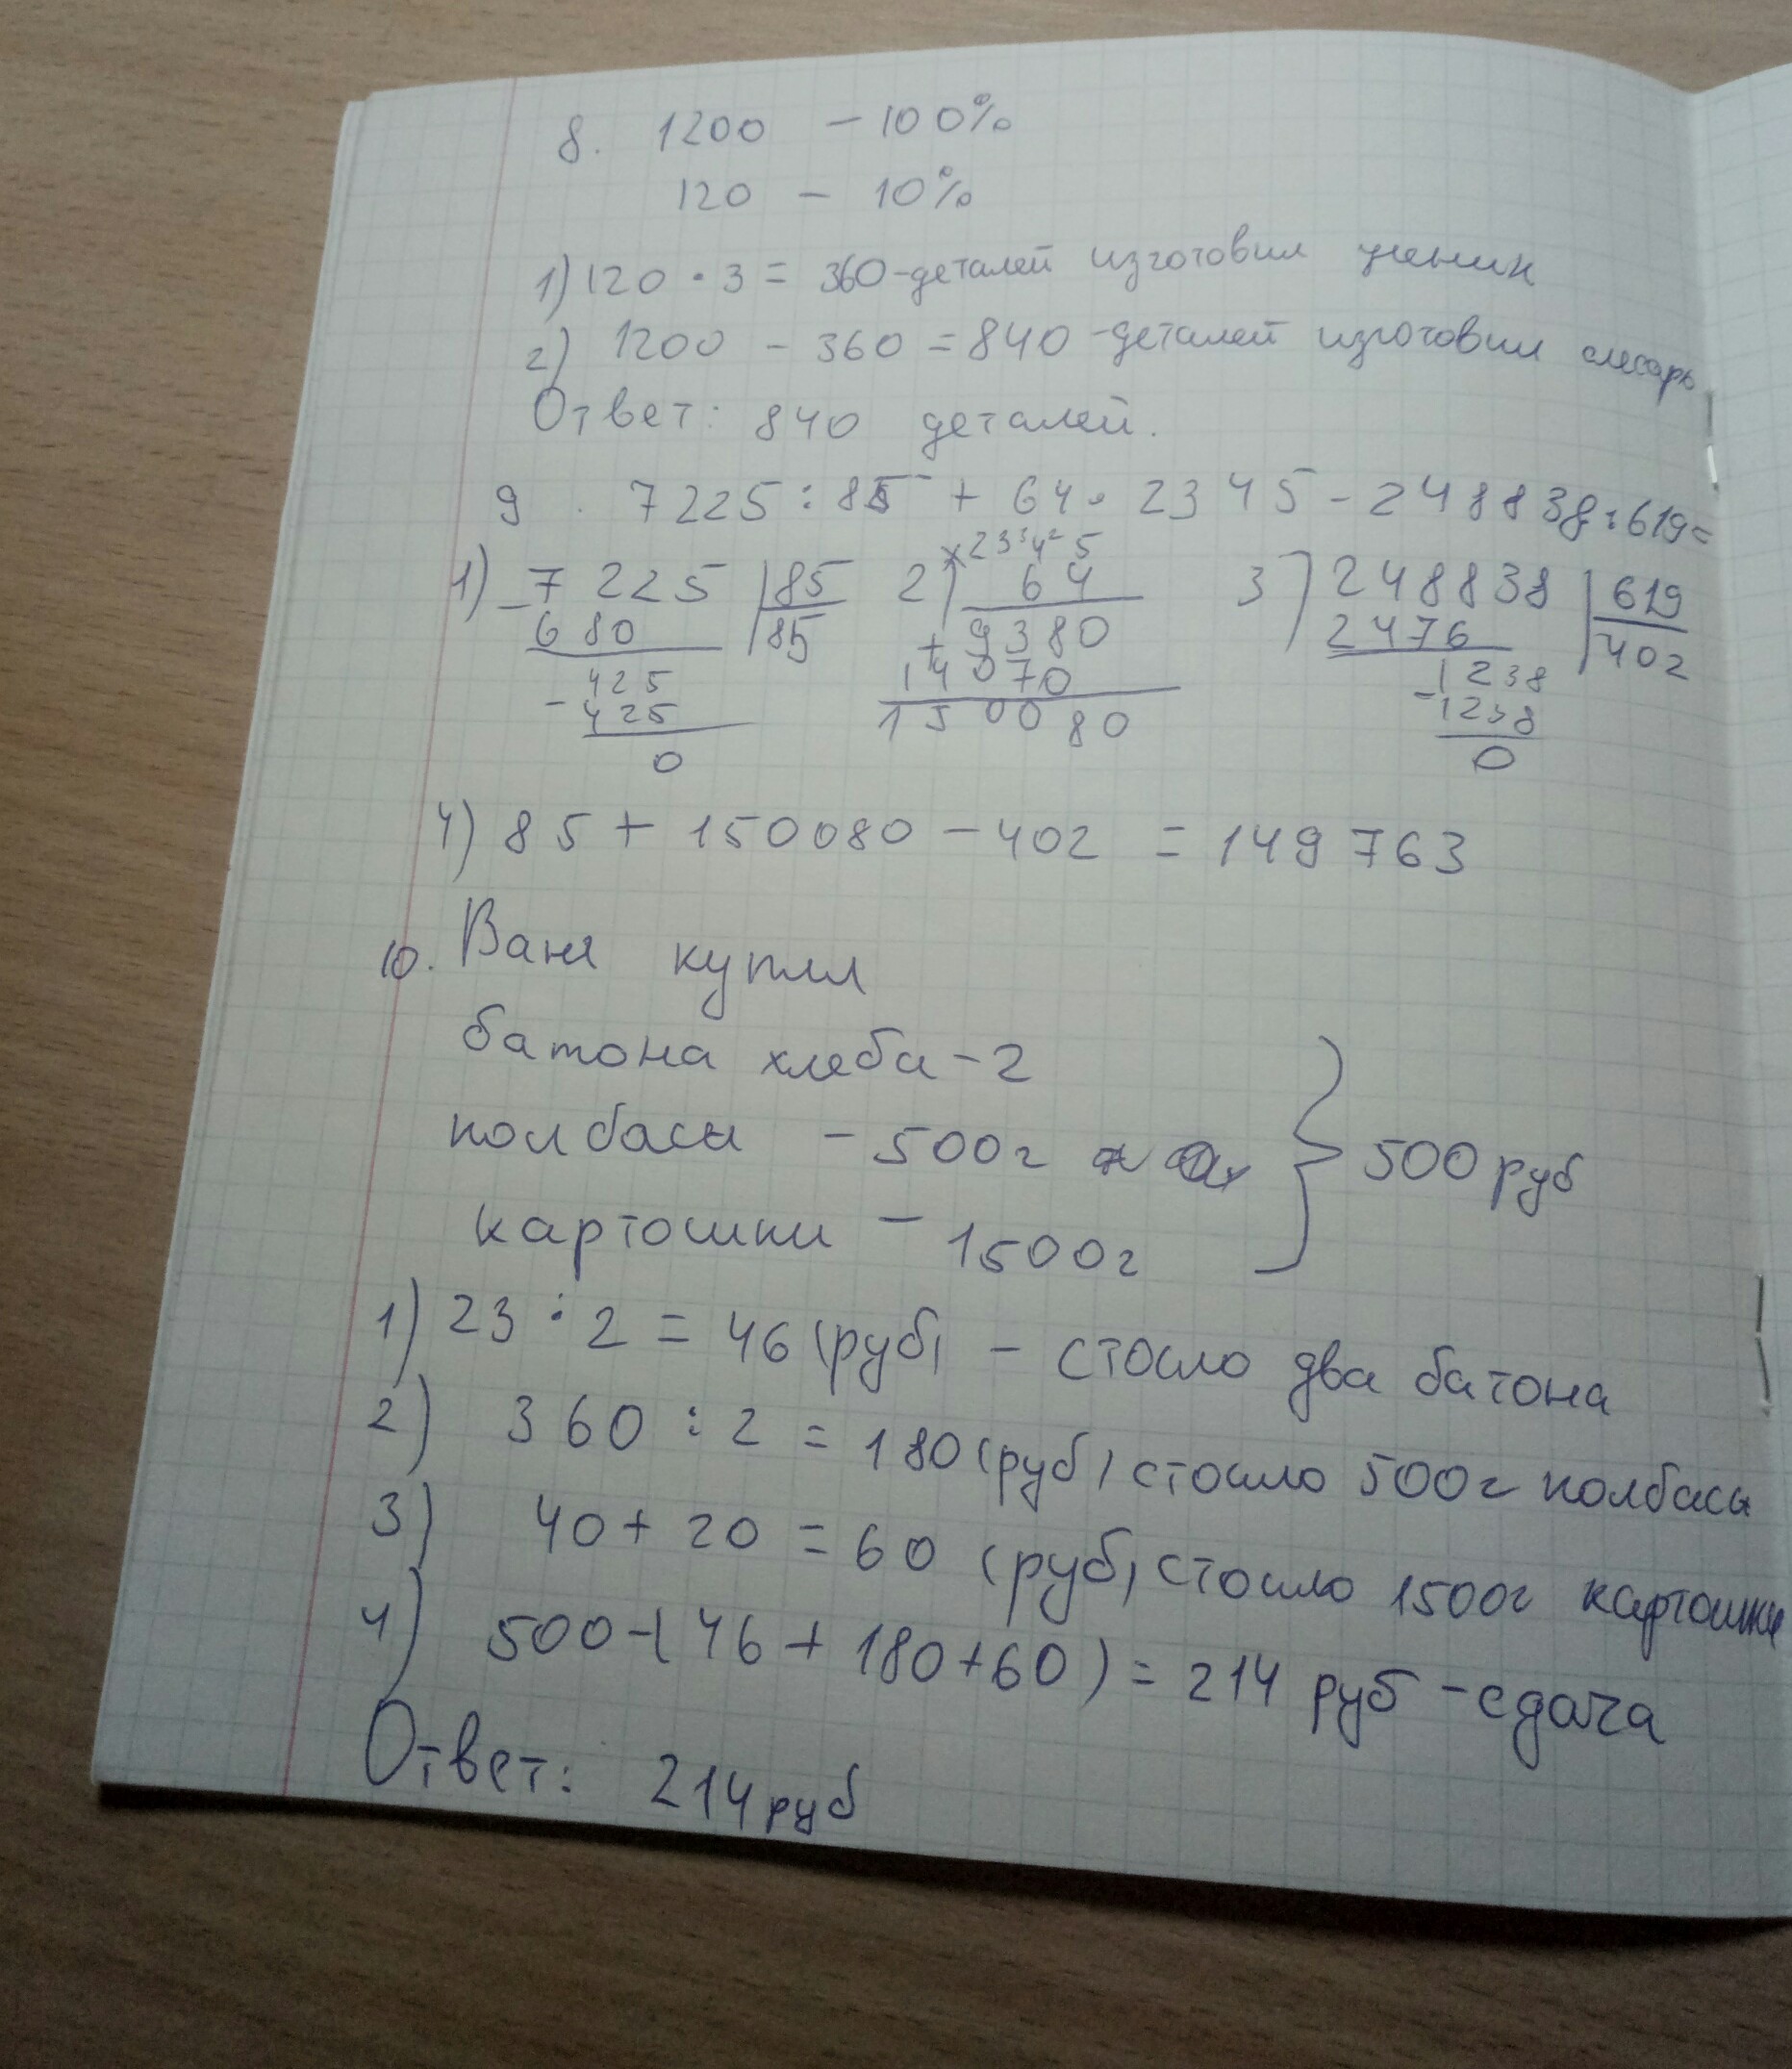 8. 1200 - 100%
120 - 10%
1) 120 · 3 = 360 - деталей изготовил ученик
2) 1200 - 360 = 840 - деталей изготовил слесарь
Ответ: 840 деталей.
9. 7225 : 85 + 64 · 2345 - 248838 : 619 =
1) 7225 | 85
- 680 | 85
425
- 425
0
2) × 2345
64
+ 9380
14070
150080
3) 248838 | 619
2476 | 402
1238
- 1238
0
4) 85 + 150080 - 402 = 149763
10. Ваня купил
батона хлеба - 2
колбасы - 500г
картошки - 1500г
} 500 руб
1) 23 · 2 = 46 (руб) - стоило два батона
2) 360 : 2 = 180 (руб) стоило 500г колбасы
3) 40 + 20 = 60 (руб) стоило 1500г картошки
4) 500 - (46 + 180 + 60) = 214 руб - сдача
Ответ: 214 руб